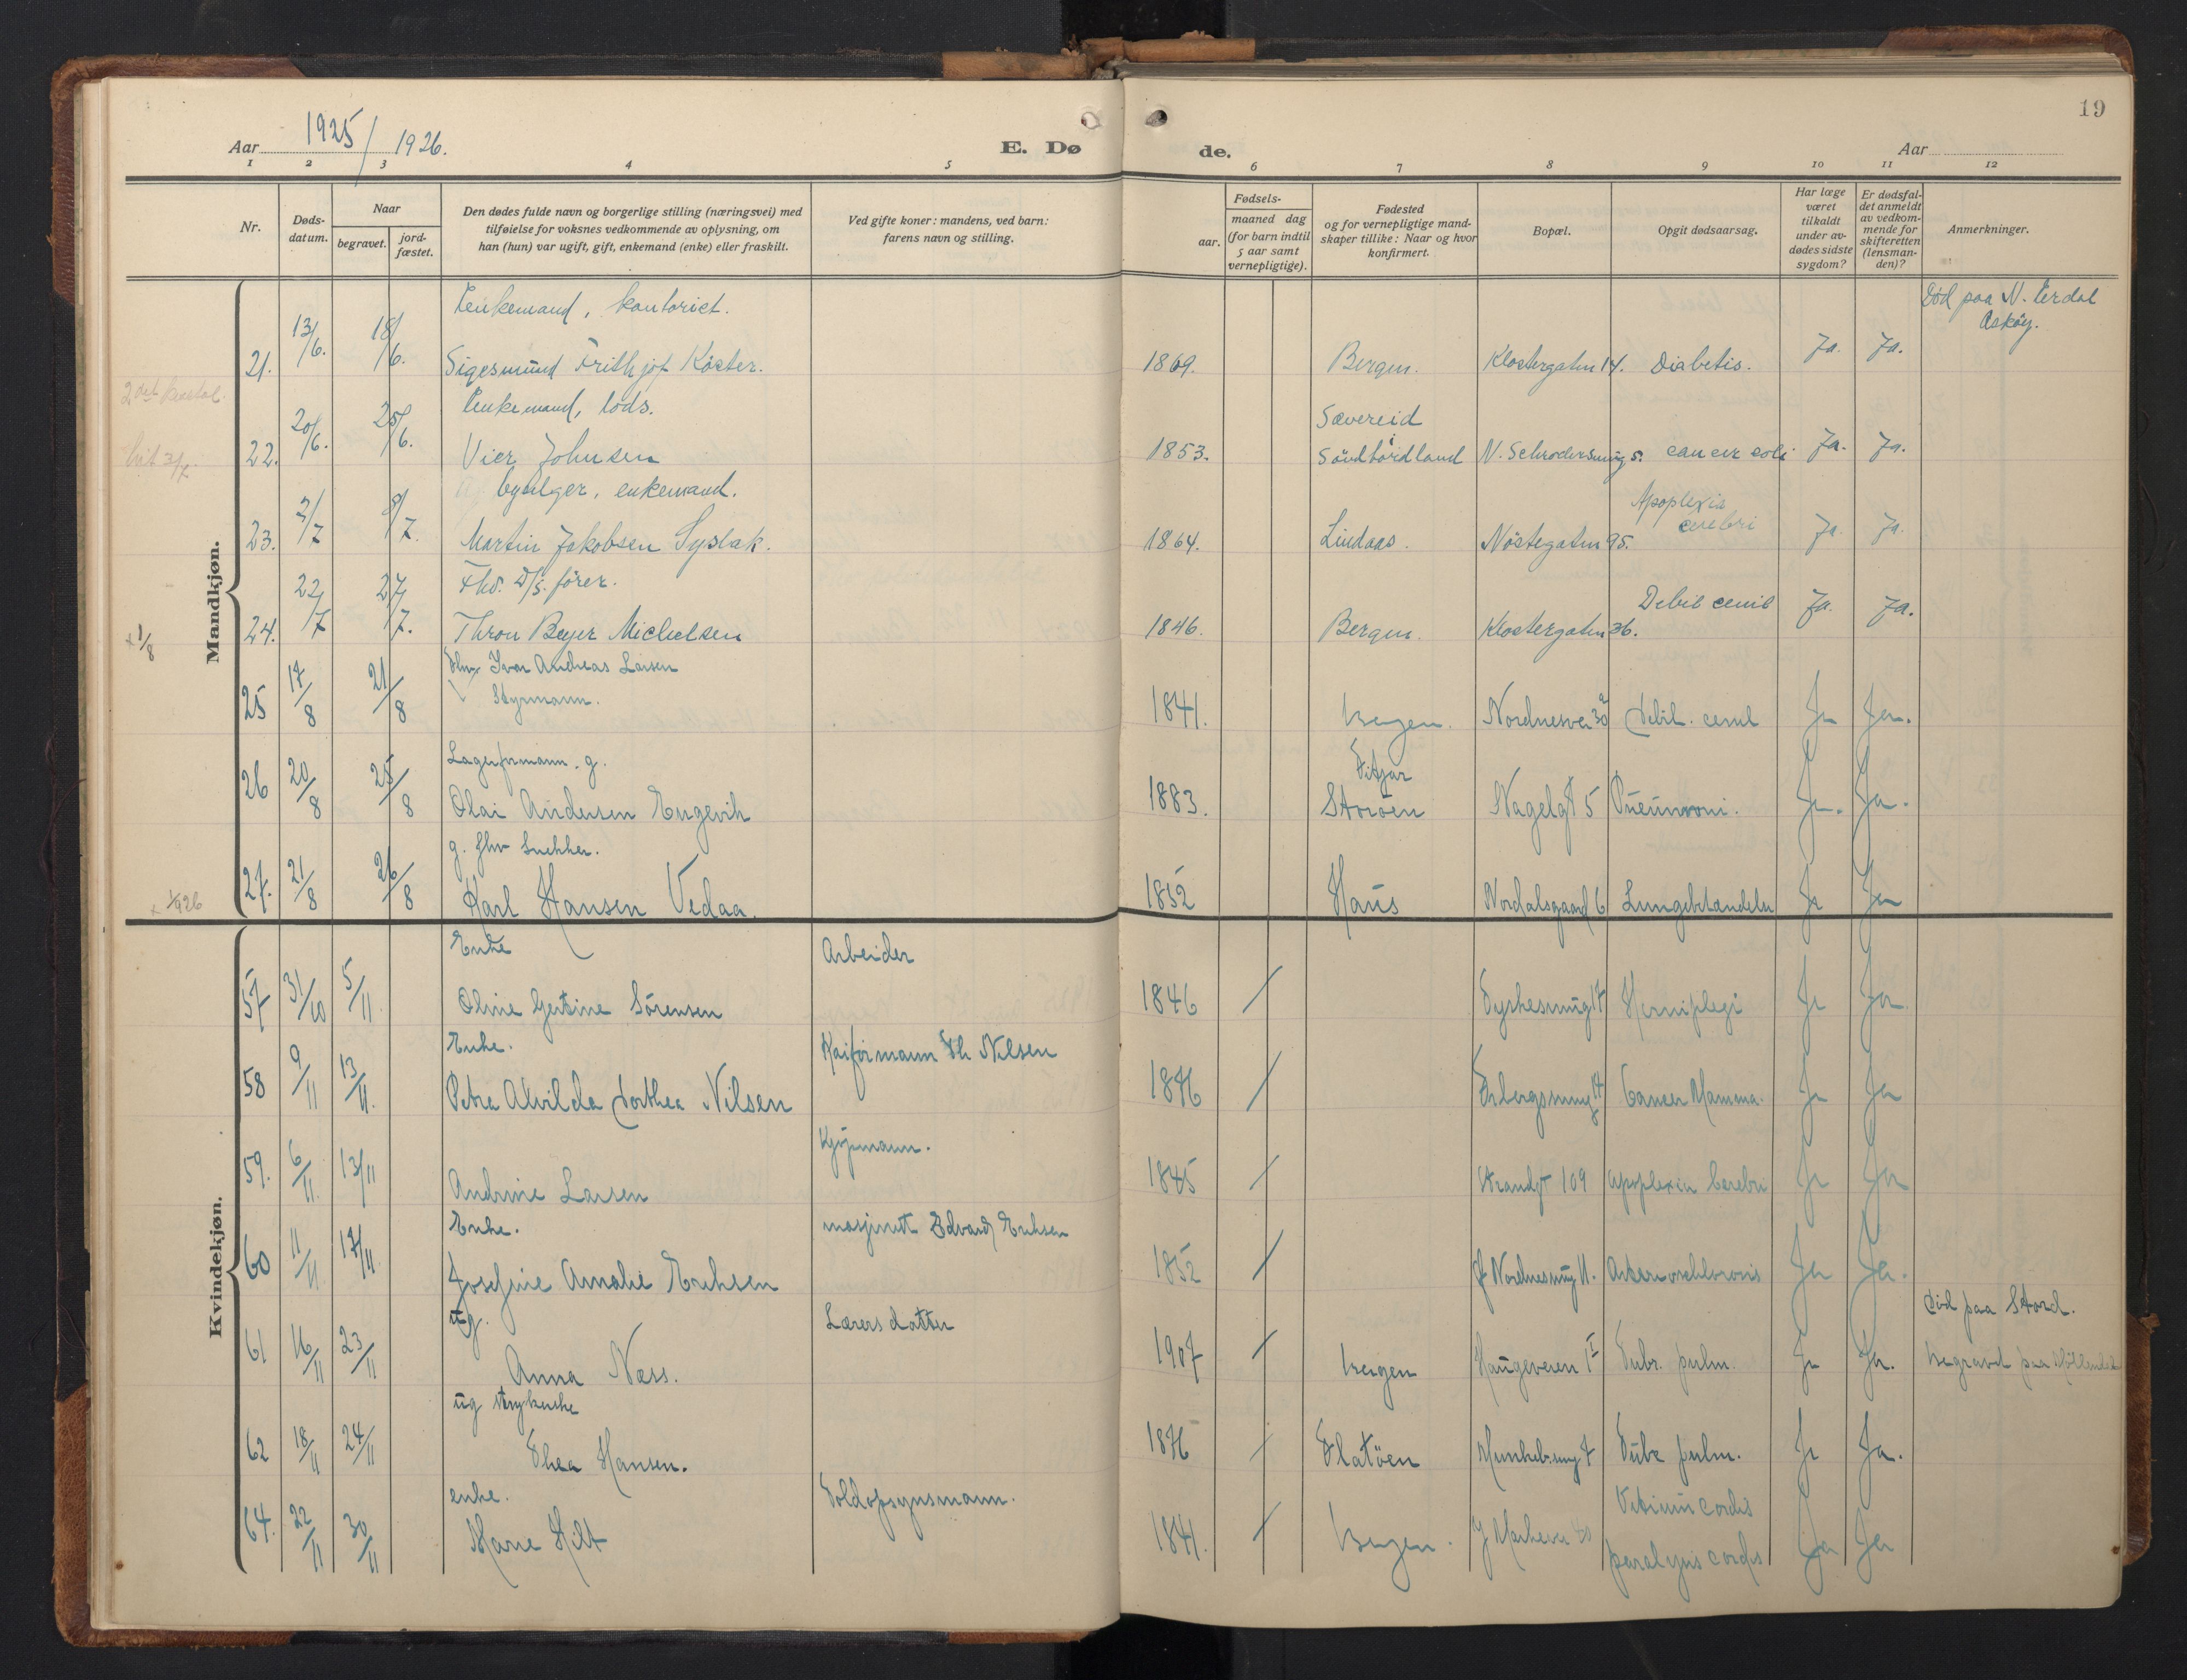 19
Aar 1925 / 1926.
E. Dø
de.
Aar
1 2 3 4 5 6 7 8 9 10 11 12
Nr.
Døds-
datum.
Naar
begravet.
jord-
fæstet.
Den dødes fulde navn og borgerlige stilling (næringsvei) med
tilføielse for voksnes vedkommende av oplysning, om
han (hun) var ugift, gift, enkemand (enke) eller fraskilt.
Ved gifte koner: mandens, ved barn:
farens navn og stilling.
Fødsels-
aar.
maaned dag
(for barn indtil
5 aar samt
vernepligtige).
Fødested
og for vernepligtige mand-
skaper tillike: Naar og hvor
konfirmert.
Bopæl.
Opgit dødsaarsag.
Har læge
været
tilkaldt
under av-
dødes sidste
sygdom?
Er dødsfal-
det anmeldt
av vedkom-
mende for
skifteretten
(lensman-
den)?
Anmerkninger.
Mandkjøn.
Enkemand, kontorist. Død paa N. Erdal
Askøy.
21. 13/6. 18/6. Sigesmund Frithjof Köster. 1869. Bergen. Klostergaten 14. Diabetis. Ja. Ja.
Enkemand, lods. Sævereid
i
22. 20/6. 25/6. Vier Johnsen 1853. Söndhordland N. Schrödersmug 5. cancer coli Ja. Ja.
bysælger, enkemand. Apoplexia
cerebri
23. 2/7 8/7. Martin Jakobsen Syslak. 1864. Lindaas. Nöstegaten 95. Ja. Ja.
Fhv. D/s. förer. Debil cenil
24. 22/7 27/7. Thron Beyer Michelsen 1846. Bergen. Klostergaten 36. Ja. Ja.
+ 1/8
Fhv Ivar Andreas Larsen
25 17/8 21/8 Styrmann. 1841. Bergen. Nordnesvei 30 Debil. cenil Ja Ja.
Lagerformann. g. Fitjar
26 20/8 25/8 Olai Andersen Engevik 1883. Storöen Nagelgt 5 Pneumoni. Ja. Ja.
g. fhv Snekker.
27. 21/8 26/8 Karl Hansen Vedaa. 1852 Haus Nordalsgaard 6 Lungebetændelse Ja Ja
Kvindekjøn.
Enke Arbeider
57 31/10 5/11 Oline Gertine Sörensen 1846 / Hemiplegi Ja Ja
Enke. Kaiformann Th Nilsen
58 9/11 13/11. Petra Alvilda Dorthea Nilsen 1846 / Cancer Mamma. Ja Ja
Kjöpmann.
59. 6/11. 13/11 Andrine Larsen 1845 / Strandgt 109 Apoplexia Cerebri Ja Ja
Enke. masjinist Edvard Eriksen
60 11/11 17/11 Josefine Amalie Eriksen 1852 / Nordnesmug 11. Ja Ja.
ug. Lærersdatter Död paa Stord.
61 16/11 23/11 Anna Næss. 1907 / Bergen Haugeveien 1 I Tub. pulm. Ja Ja. Begravet paa Möllendal
ug Strykerske
62 18/11 24/11 Thea Hansen. 1876 / Flatöen Tub. pulm. Ja Ja.
enke. Toldopsynsmann. Vitium cordis
64. 22/11 30/11 Marie Hilt 1841. / Bergen. paralysis cordis Ja Ja